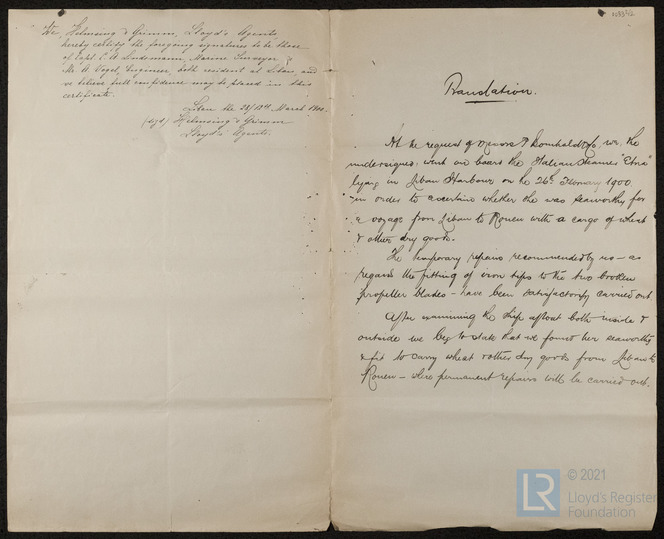 We, Helmsing & Grimm, Lloyd's Agents
hereby certify the foregoing signatures to be those
of Capt. C. A. Lindemann, Marine Surveyor &
Mr A. Vogel, Engineer, both resident at Libau, and
we believe full confidence may be placed in this
certificate.
Libau the 28/13th March 1900.
(sgd) Helmsing & Grimm
Lloyd's Agents.
Translation.
At the request of Messrs P. Bornholdt & Co, we, the
undersigned, went on board the Italian Steamer "Etna"
lying in Libau Harbour on the 26th February 1900
in order to ascertain whether she was seaworthy for
a voyage from Libau to Rouen with a cargo of wheat
& other dry goods.
The temporary repairs recommended by us – as
regards the fitting of iron tips to the two broken
propeller blades – have been satisfactorily carried out
After examining the ship afloat both inside &
outside we beg to state that we found her seaworthy
& fit to carry wheat & other dry goods from Libau to
Rouen – where permanent repairs will be carried out.
© 2021
LR
Lloyd's Register
Foundation